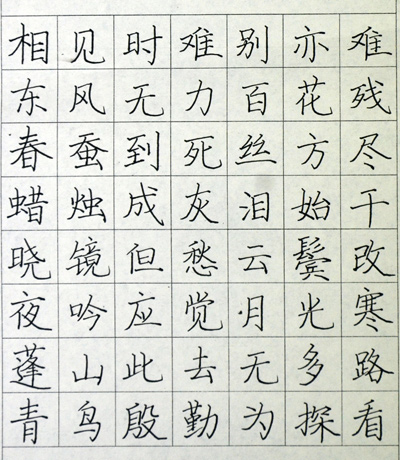 相见时难别亦难
东风无力百花残
春蚕到死丝方尽
蜡烛成灰泪始干
晓镜但愁云鬓改
夜吟应觉月光寒
蓬山此去无多路
青鸟殷勤为探看